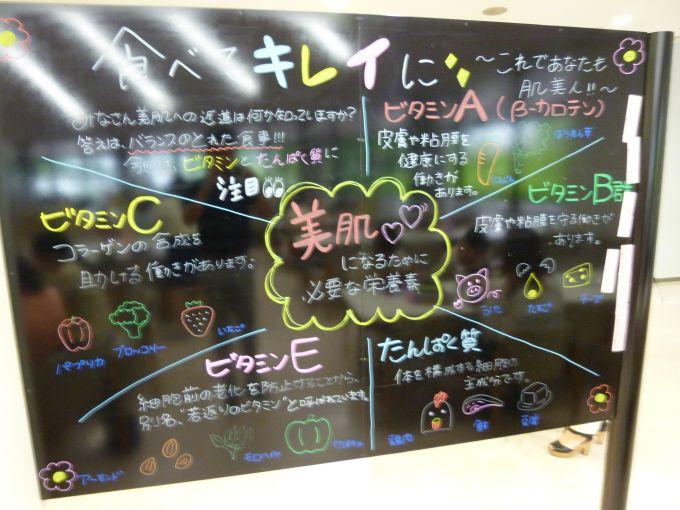 食べてキレイに
～これであなたも
肌美人!!～
みなさん美肌への近道は何か知っていますか?
答えは、バランスのとれた食事!!!
今回は、ビタミンとたんぱく質に
注目
ビタミンA(β-カロテン)
皮膚や粘膜を
健康にする
働きが
あります。
にんじん
ほうれん草
ビタミンB群
皮膚や粘膜を守る働きが
あります。
ぶた
たまご
チーズ
ビタミンC
コラーゲンの合成を
助ける働きがあります。
パプリカ
ブロッコリー
いちご
美肌
になるために
必要な栄養素
ビタミンE
細胞前の老化を防止することから、
別名、"若返りのビタミン"と呼ばれています。
アーモンド
モロヘイヤ
かぼちゃ
たんぱく質
体を構成する細胞の
主成分です。
鶏肉
鮭
豆腐